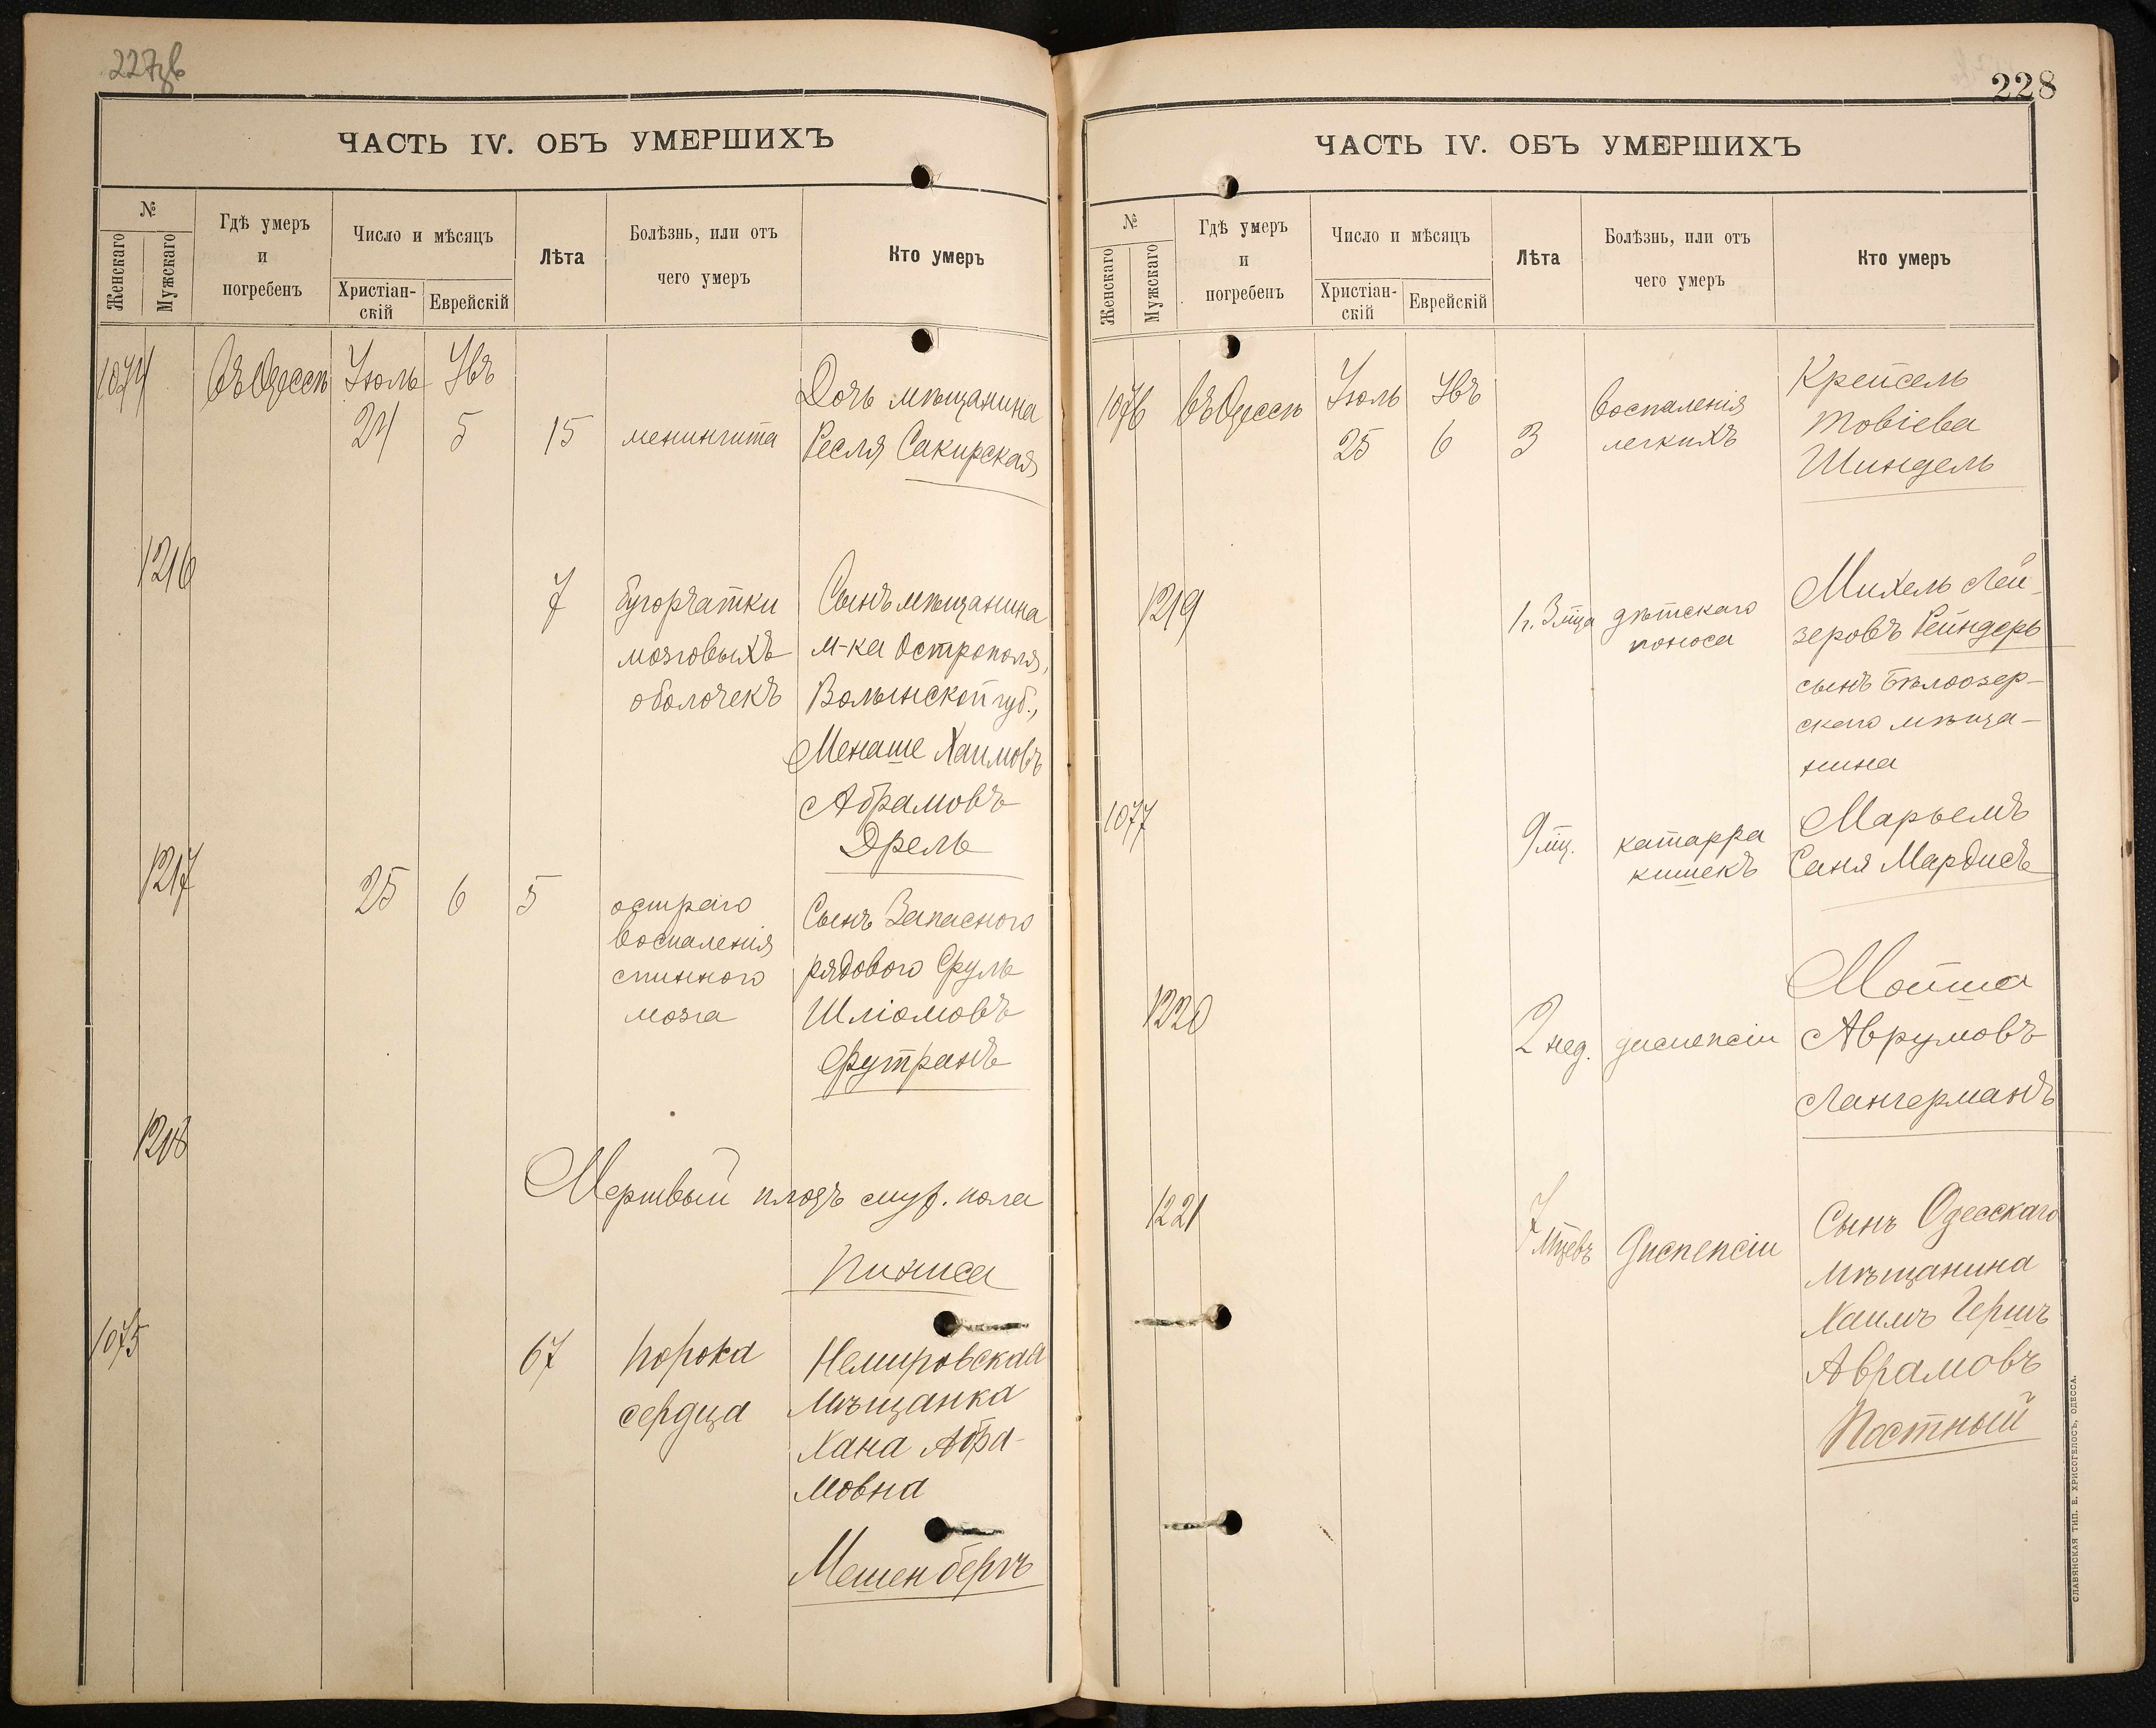 227зв
ЧАСТЬ IV. ОБЪ УМЕРШИХЪ
№
Женскаго
Мужскаго
Гдѣ умеръ
и
погребенъ
Число и мѣсяцъ
Христіан-
скій
Еврейскій
Лѣта
Болѣзнь, или отъ
чего умеръ
Кто умеръ
1074
въ Одессѣ
Іюль
24
Увъ
5
15
менингита
Дочь мѣщанина
Песля Сакирская
1216
7
бугорчатки
мозговыхъ
оболочекъ
Сынъ мѣщанина
м-ка Острополя,
Волынской губ.,
Менаше Хаимовъ
Абрамовъ
Дрель
1217
25
6
5
остраго
воспаленія
спинного
мозга
Сынъ Запасного
рядового Сруль
Шліомовъ
Футранъ
1218
Мертвый плодъ муж. пола
Пиниса
1075
67
порока
сердца
Немировская
Мѣщанка
Хана Абра-
мовна
Мешенбергъ
228
ЧАСТЬ IV. ОБЪ УМЕРШИХЪ
№
Женскаго
Мужскаго
Гдѣ умеръ
и
погребенъ
Число и мѣсяцъ
Христіан-
скій
Еврейскій
Лѣта
Болѣзнь, или отъ
чего умеръ
Кто умеръ
1076
въ Одессѣ
Іюль
25
Увъ
6
3
воспаленія
легкихъ
Крейсель
Товіева
Шиндель
1219
1г. 3 мца
дѣтскаго
поноса
Михель Лей-
зеровъ Рейндерь
сынъ Бѣлоозер-
скаго мѣща-
нина
1077
9 мц.
катарра
кишекъ
Марьемъ
Саня Мардисъ
1220
2 нед.
диспепсіи
Мойша
Аврумовъ
Лангерманъ
1221
7 Мцевъ
Диспепсіи
Сынъ Одесскаго
Мѣщанина
Хаимъ Гершъ
Аврамовъ
Постный
СЛАВЯНСКАЯ ТИП. Е. ХРИСОГЕЛОСЪ, ОДЕССА.